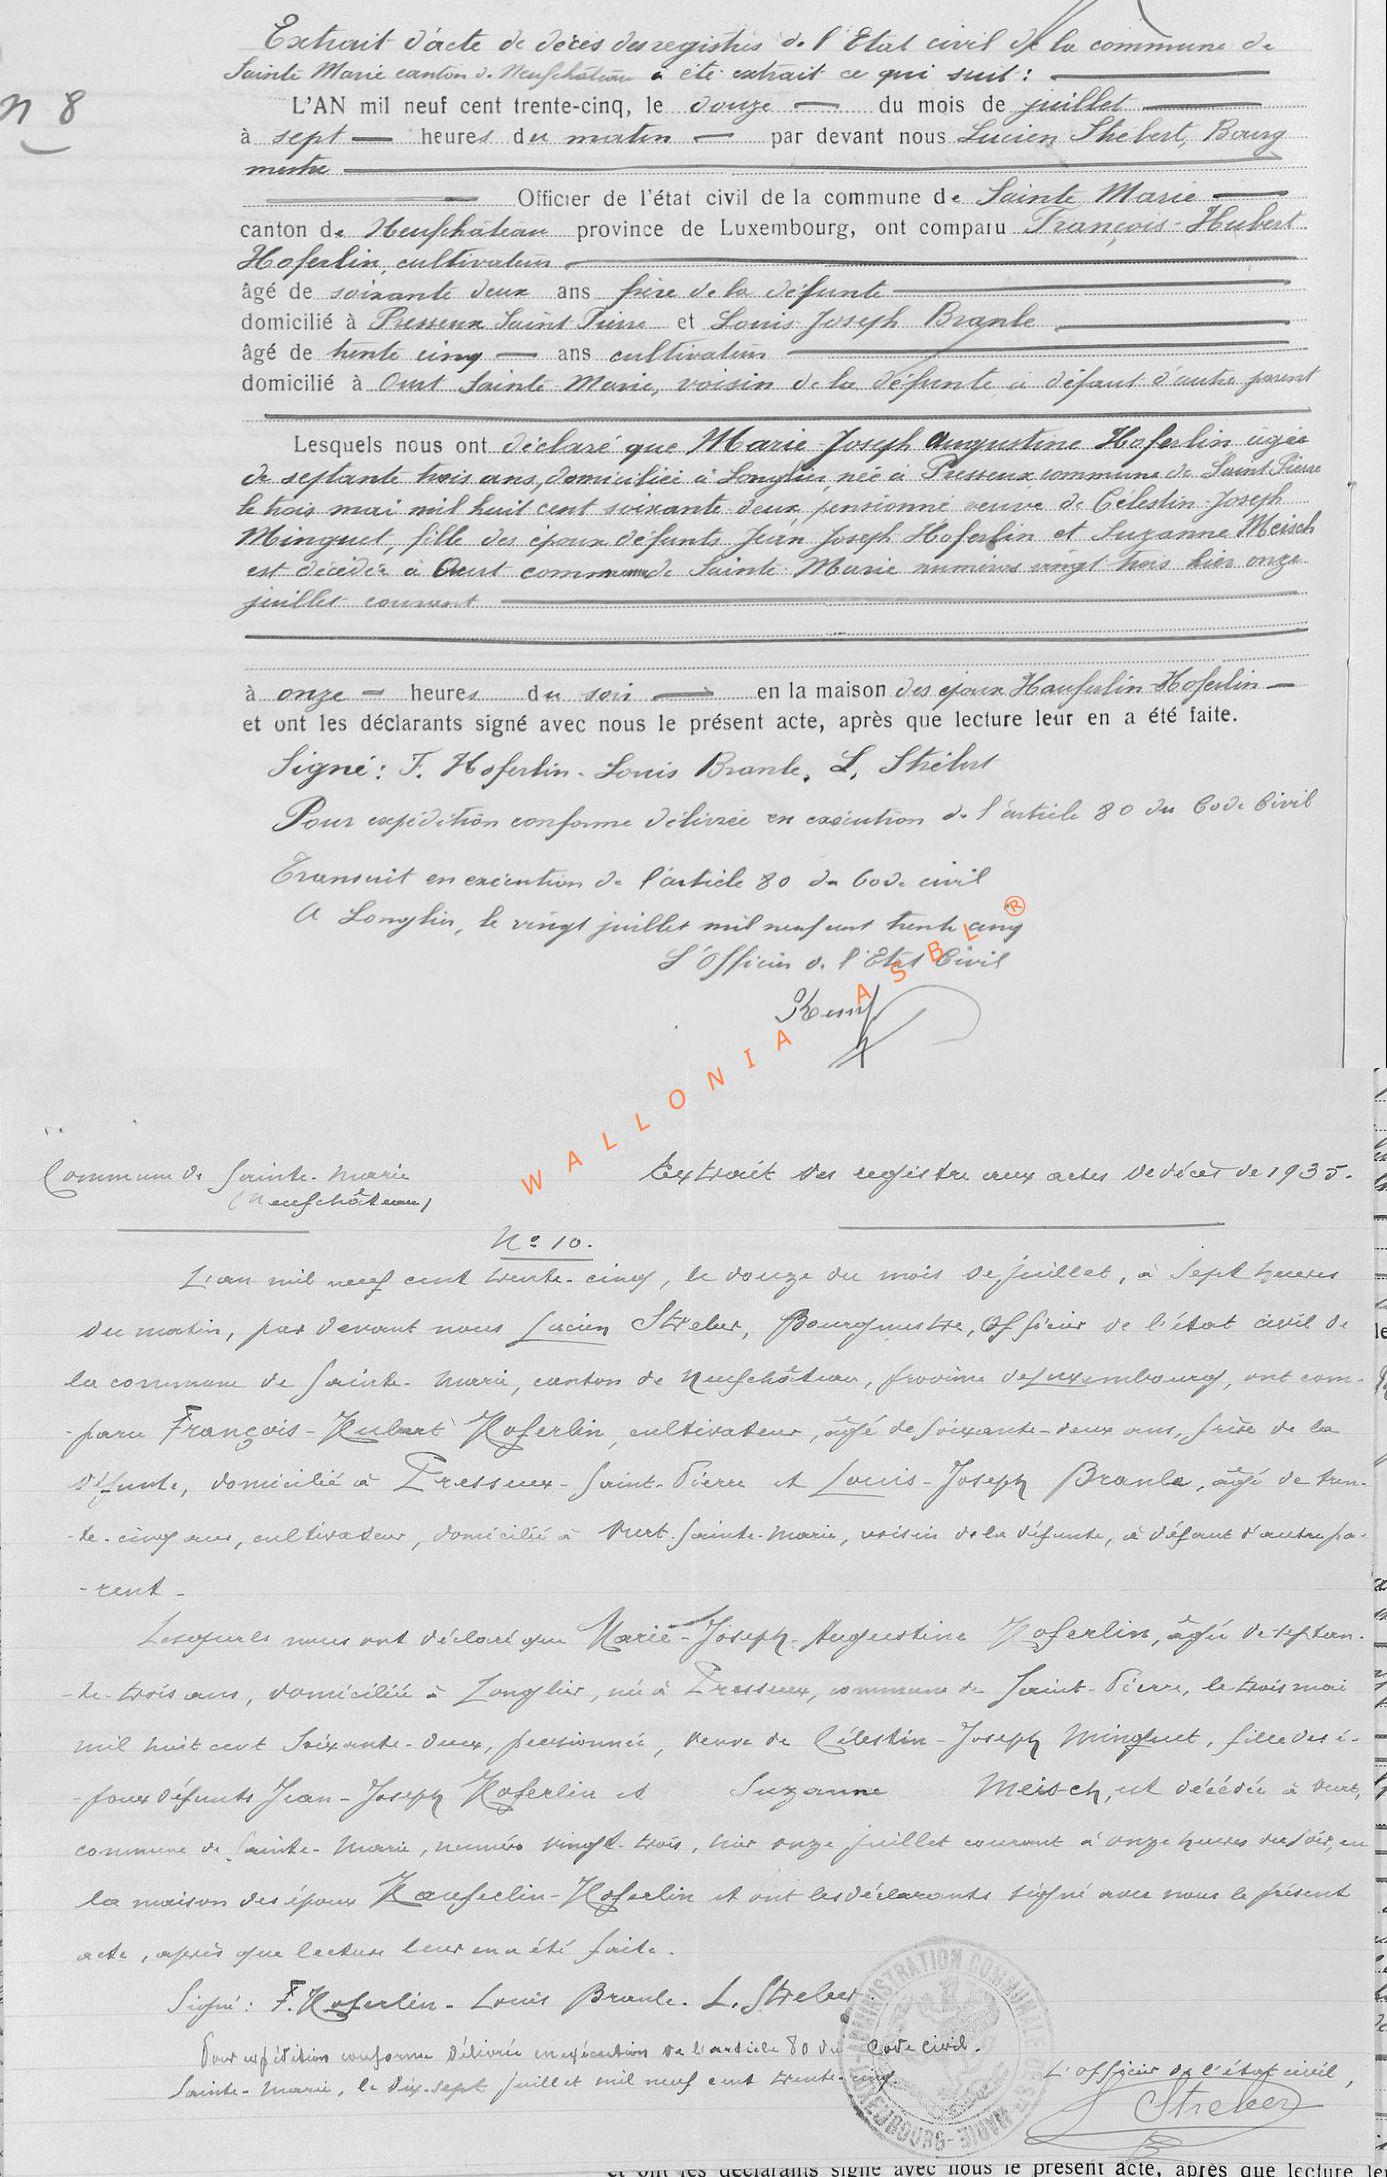 Extrait d'acte de décès des registres de l'Etat civil de la commune de
Sainte Marie canton de Neufchâteau a été extrait ce qui suit :
n 8
L'AN mil neuf cent trente-cinq, le douze du mois de juillet
à sept heures du matin par devant nous Lucien Strebert, Bourg
mestre
Officier de l'état civil de la commune de Sainte Marie
canton de Neufchâteau province de Luxembourg, ont comparu François-Hubert
Hoferlin, cultivateur
âgé de soixante deux ans frère de la défunte
domicilié à Presseux Saint Pierre et Louis Joseph Branle
âgé de trente cinq ans cultivateur
domicilié à Ourt Sainte Marie, voisin de la défunte à défaut d'autre parent
Lesquels nous ont déclaré que Marie Joseph Augustine Hoferlin âgée
de septante trois ans, domiciliée à Longlier, née à Presseux commune de Saint-Pierre
le trois mai mil huit cent soixante deux, pensionné veuve de Célestin-Joseph
Minguet, fille des époux défunts Jean Joseph Hoferlin et Suzanne Meisch
est décédée à Ourt commune de Sainte Marie numéros vingt trois hier onze
juillet courant
à onze heures du soir en la maison des époux Hauferlin-Hoferlin
et ont les déclarants signé avec nous le présent acte, après que lecture leur en a été faite.
Signé : F. Hoferlin - Louis Branle, L. Strébert
Pour expédition conforme délivrée en exécution de l'article 80 du Code Civil
Transcrit en exécution de l'article 80 du Code civil
A Longlier, le vingt juillet mil neuf cent trente cinq
L'Officier de l'Etat Civil
WALLONIA ASBL ®
Commune de Sainte-Marie
(Neufchâteau)
Extrait des registre aux actes de décès de 1935.
No 10.
L'an mil neuf cent trente-cinq, le douze du mois de juillet, à sept heures
du matin, par devant nous Lucien Streber, Bourgmestre, Officier de l'état civil de
la commune de Sainte-Marie, canton de Neufchâteau, province de Luxembourg, ont com-
-paru François-Hubert Hoferlin, cultivateur, âgé de soixante-deux ans, frère de la
défunte, domicilié à Presseux-Saint-Pierre et Louis-Joseph Branle, âgé de tren-
-te-cinq ans, cultivateur, domicilié à Ourt-Sainte-Marie, voisin de la défunte, à défaut d'autre pa-
-rent-
Lesquels nous ont déclaré que Marie-Joseph-Augustine Hoferlin, âgée de septan-
-te-trois ans, domiciliée à Longlier, née à Presseux, commune de Saint-Pierre, le trois mai
mil huit cent soixante-deux, pensionnée, veuve de Célestin-Joseph Minguet, fille des é-
-poux défunts Jean-Joseph Hoferlin et Suzanne Meisch, est décédée à Ourt,
commune de Sainte-Marie, numéro vingt-trois, hier onze juillet courant à onze heures du soir, en
la maison des époux Hauferlin-Hoferlin et ont les déclarants signé avec nous le présent
acte, après que lecture leur en a été faite.
Signé : F. Hoferlin - Louis Branle - L. Streber.
Pour expédition conforme délivrée en exécution de l'article 80 du Code civil.
Sainte-Marie, le dix-sept juillet mil neuf cent trente-cinq.
L'officier de l'état civil,
Streber
ADMINISTRATION COMMUNALE DE STE MARIE - LUXEMBOURG
et ont les déclarants signé avec nous le présent acte, après que lecture le